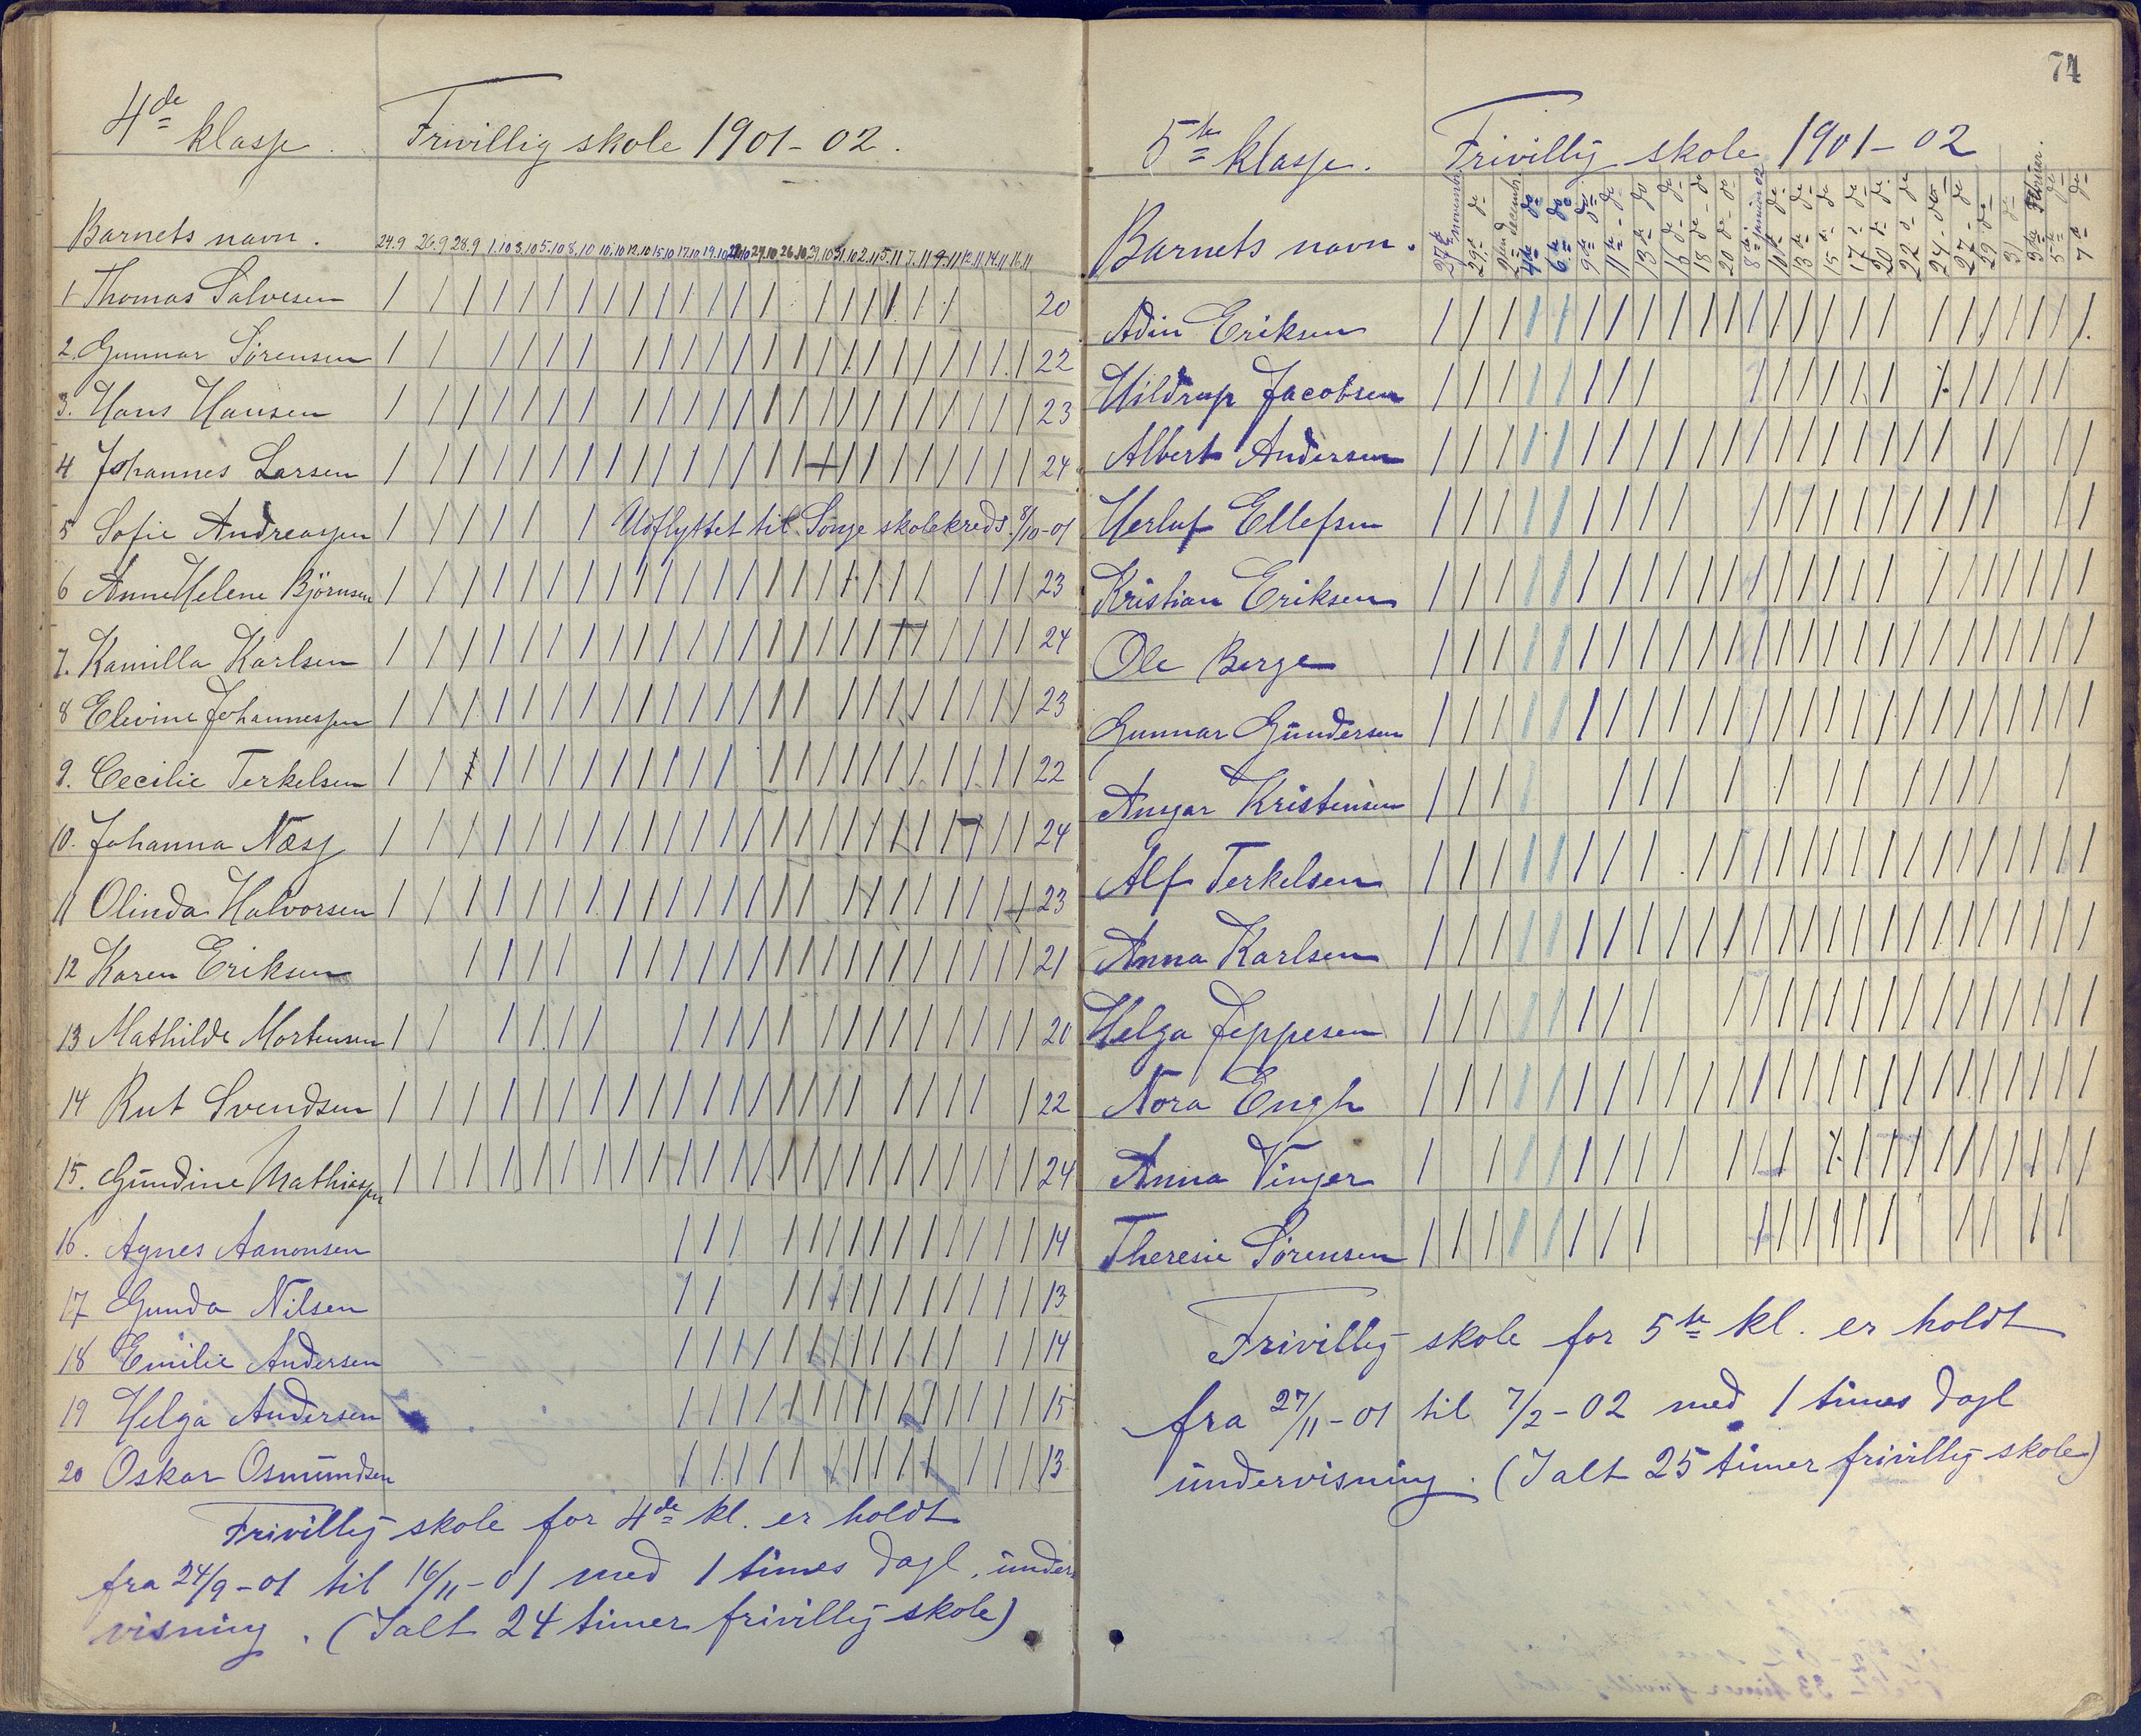 4de klasse. Frivillig skole 1901-02.
Barnets navn. 24.9 26.9 28.9 1.10 3.10 5.10 8.10 10.10 12.10 15.10 17.10 19.10 22.10 24.10 26.10 29.10 31.10 2.11 5.11 7.11 9.11 12.11 14.11 16.11
1 Thomas Salvesen 20
2. Gunnar Sørensen 22
3. Hans Hansen 23
4 Johannes Larsen 24
5 Sofie Andreassen Udflyttet til Songe skolekreds 8/10-01
6 Anne Helene Björnsen 23
7. Kamilla Karlsen 24
8 Elevine Johannessen 23
9. Cecilie Terkelsen 22
10. Johanna Næss 24
11 Olinda Halvorsen 23
12 Karen Eriksen 21
13 Mathilde Mortensen 20
14 Rut Svendsen 22
15. Gundine Mathiassen 24
16. Agnes Aanonsen 14
17 Gunda Nilsen 13
18 Emilie Andersen 14
19 Helga Andersen 15
20 Oskar Osmundsen 13
Frivillig skole for 4de kl. er holdt
fra 24/9-01 til 16/11-01 med 1 times dagl. under
visning. (Ialt 24 timer frivillig skole)
74
5te klasse. Frivillig skole 1901-02
Barnets navn. 27de november 29de do 2den decembr. 4de do 6te do 9de do 11te do 13de do 16de do 18de do 20de do 8de januar 02 10de do 13de do 15de do 17de do 20de do 22de do 24de do 27de do 29de do 31 do 3die Februar. 5te do 7de do
Adin Eriksen
Hildrup Jacobsen
Albert Andersen
Herluf Ellefsen
Kristian Eriksen
Ole Berge
Gunnar Gundersen
Ansgar Kristensen
Alf Terkelsen
Anna Karlsen
Helga Jeppesen
Nora Engh
Anna Vinger
Theresie Sørensen
Frivillig skole for 5te kl. er holdt
fra 27/11-01 til 7/2-02 med 1 times dagl
undervisning. (Ialt 25 timer frivillig skole)